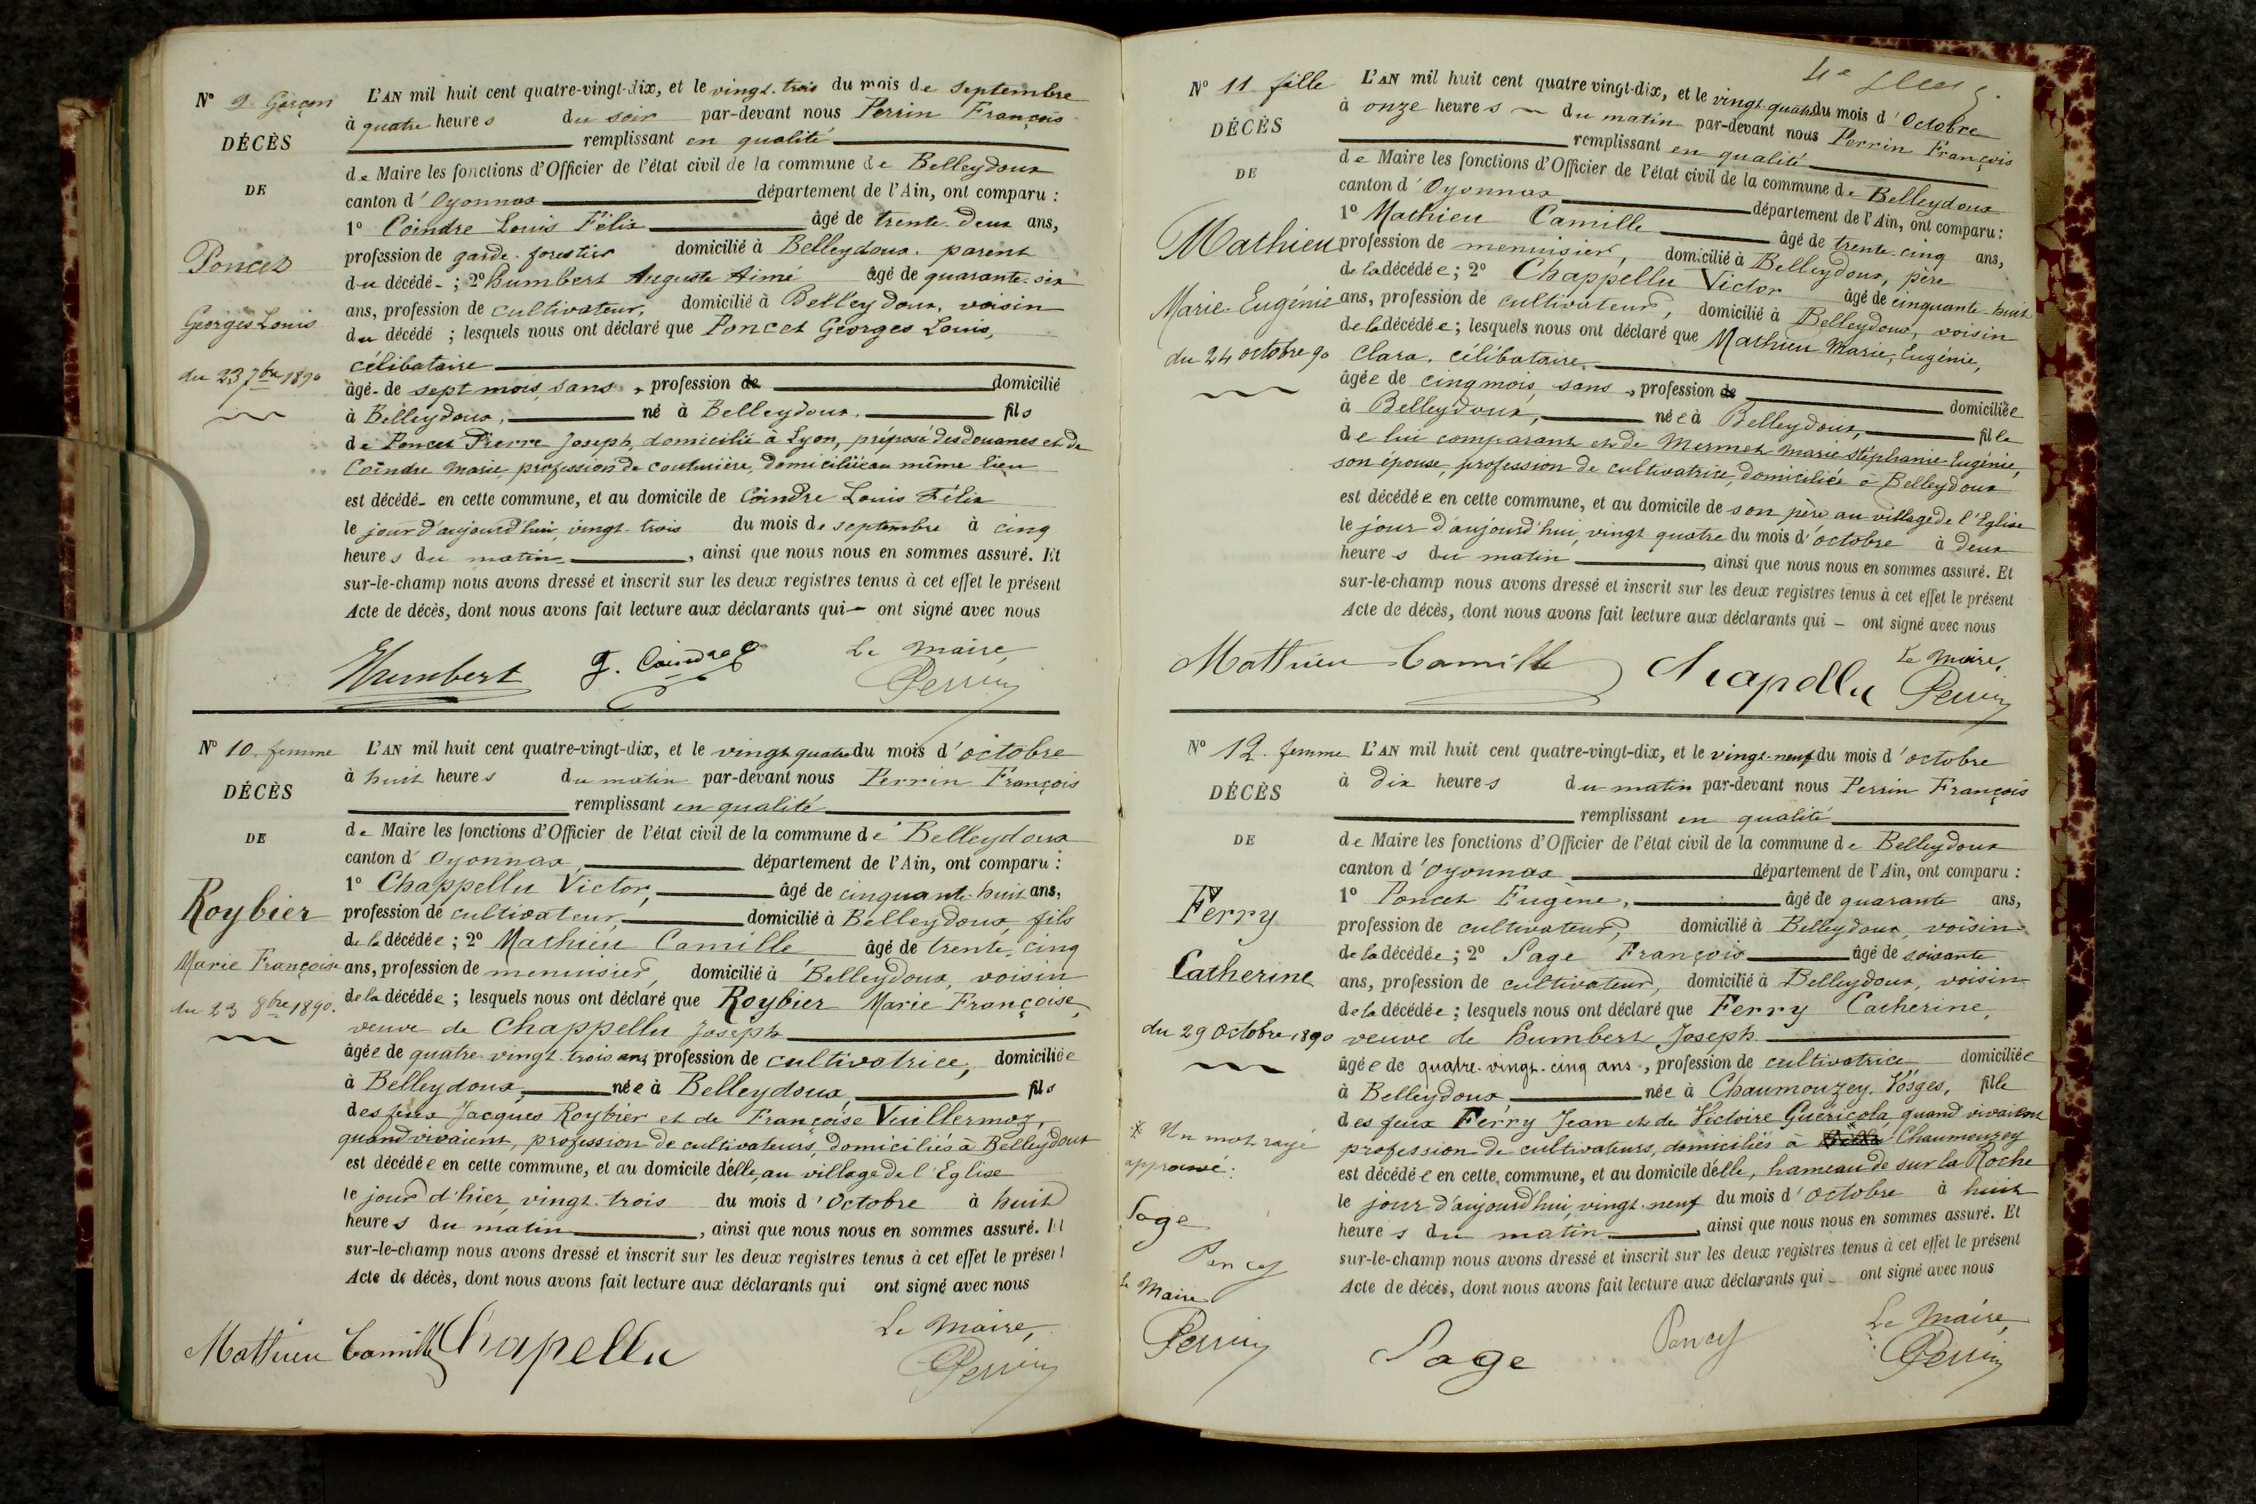 N° 9 Garçon
DÉCÈS
DE
Poncet
Georges Louis
du 23 7bre 1890
L'AN mil huit cent quatre-vingt-dix, et le vingt-trois du mois de septembre
à quatre heures du soir par-devant nous Perrin François
remplissant en qualité
de Maire les fonctions d'Officier de l'état civil de la commune de Belleydoux
canton d'Oyonnax département de l'Ain, ont comparu :
1° Coindre Louis Félix âgé de trente-deux ans,
profession de garde-forestier domicilié à Belleydoux, parent
du décédé ; 2° humbert Auguste Aimé âgé de quarante-six
ans, profession de cultivateur, domicilié à Belleydoux, voisin
du décédé ; lesquels nous ont déclaré que Poncet Georges Louis,
célibataire
âgé de sept mois, sans, profession de domicilié
à Belleydoux, né à Belleydoux, fils
de Poncet Pierre Joseph, domicilié à Lyon, préposé des douanes et de
Coindre Marie, profession de couturière, domiciliée au même lieu
est décédé en cette commune, et au domicile de Coindre Louis Félix
le jour d'aujourd'hui, vingt-trois du mois de septembre à cinq
heures du matin, ainsi que nous nous en sommes assuré. Et
sur-le-champ nous avons dressé et inscrit sur les deux registres tenus à cet effet le présent
Acte de décès, dont nous avons fait lecture aux déclarants qui — ont signé avec nous
Le Maire,
Humbert Coindre Perrin
N° 10 femme
DÉCÈS
DE
Roybier
Marie Françoise
du 23 8bre 1890.
L'AN mil huit cent quatre-vingt-dix, et le vingt quatre du mois d'octobre
à huit heures du matin par-devant nous Perrin François
remplissant en qualité
de Maire les fonctions d'Officier de l'état civil de la commune de Belleydoux
canton d'Oyonnax, département de l'Ain, ont comparu :
1° Chappellu Victor, âgé de cinquante-huit ans,
profession de cultivateur, domicilié à Belleydoux, fils
de la décédée ; 2° Mathieu Camille âgé de trente-cinq
ans, profession de menuisier, domicilié à Belleydoux, voisin
de la décédée ; lesquels nous ont déclaré que Roybier Marie Françoise,
veuve de Chappellu Joseph
âgée de quatre-vingt-trois ans, profession de cultivatrice, domiciliée
à Belleydoux, née à Belleydoux, fils
des feux Jacques Roybier et de Françoise Vuillermoz,
quand vivaient, profession de cultivateurs, domiciliés à Belleydoux
est décédée en cette commune, et au domicile d'elle, au village de l'Eglise
le jour d'hier, vingt-trois du mois d'Octobre à huit
heures du matin, ainsi que nous nous en sommes assuré. Et
sur-le-champ nous avons dressé et inscrit sur les deux registres tenus à cet effet le présent
Acte de décès, dont nous avons fait lecture aux déclarants qui ont signé avec nous
Le Maire,
Mathieu Camille Chapellu Perrin
N° 11 fille
DÉCÈS
DE
Mathieu
Marie-Eugénie
du 24 octobre 90
L'AN mil huit cent quatre vingt-dix, et le vingt-quatre du mois d'Octobre
à onze heures du matin par-devant nous Perrin François
remplissant en qualité
de Maire les fonctions d'Officier de l'état civil de la commune de Belleydoux
canton d'Oyonnax département de l'Ain, ont comparu :
1° Mathieu Camille âgé de trente-cinq ans,
profession de menuisier, domicilié à Belleydoux, père
de la décédée ; 2° Chappellu Victor âgé de cinquante-huit
ans, profession de cultivateur, domicilié à Belleydoux, voisin
de la décédée ; lesquels nous ont déclaré que Mathieu Marie, Eugénie,
Clara, célibataire
âgée de cinq mois, sans, profession de domiciliée
à Belleydoux, née à Belleydoux, fille
de lui comparant et de Mermet Marie Stéphanie Eugénie,
son épouse, profession de cultivatrice, domiciliée à Belleydoux
est décédée en cette commune, et au domicile de son père au village de l'Eglise
le jour d'aujourd'hui, vingt quatre du mois d'octobre à deux
heures du matin, ainsi que nous nous en sommes assuré. Et
sur-le-champ nous avons dressé et inscrit sur les deux registres tenus à cet effet le présent
Acte de décès, dont nous avons fait lecture aux déclarants qui — ont signé avec nous
Le Maire,
Mathieu Camille Chapellu Perrin
N° 12. femme
DÉCÈS
DE
Ferry
Catherine
du 29 Octobre 1890
L'AN mil huit cent quatre-vingt-dix, et le vingt-neuf du mois d'octobre
à dix heures du matin par-devant nous Perrin François
remplissant en qualité
de Maire les fonctions d'Officier de l'état civil de la commune de Belleydoux
canton d'Oyonnax département de l'Ain, ont comparu :
1° Poncet Eugène, âgé de quarante ans,
profession de cultivateur, domicilié à Belleydoux, voisin
de la décédée ; 2° Sage François âgé de soixante
ans, profession de cultivateur, domicilié à Belleydoux, voisin
de la décédée ; lesquels nous ont déclaré que Ferry Catherine,
veuve de humbert Joseph
âgée de quatre-vingt-cinq ans, profession de cultivatrice domiciliée
à Belleydoux née à Chaumouzey Vosges, fille
des feux Ferry Jean et de Victoire Guéricola, quand vivaient
profession de cultivateurs, domiciliés à Chaumouzey
est décédée en cette commune, et au domicile d'elle, hameau de sur la Roche
le jour d'aujourd'hui, vingt-neuf du mois d'octobre à huit
heures du matin, ainsi que nous nous en sommes assuré. Et
sur-le-champ nous avons dressé et inscrit sur les deux registres tenus à cet effet le présent
Acte de décès, dont nous avons fait lecture aux déclarants qui — ont signé avec nous
Un mot rayé
approuvé.
Sage
Poncet
Le Maire
Perrin
Le Maire,
Sage Poncet Perrin